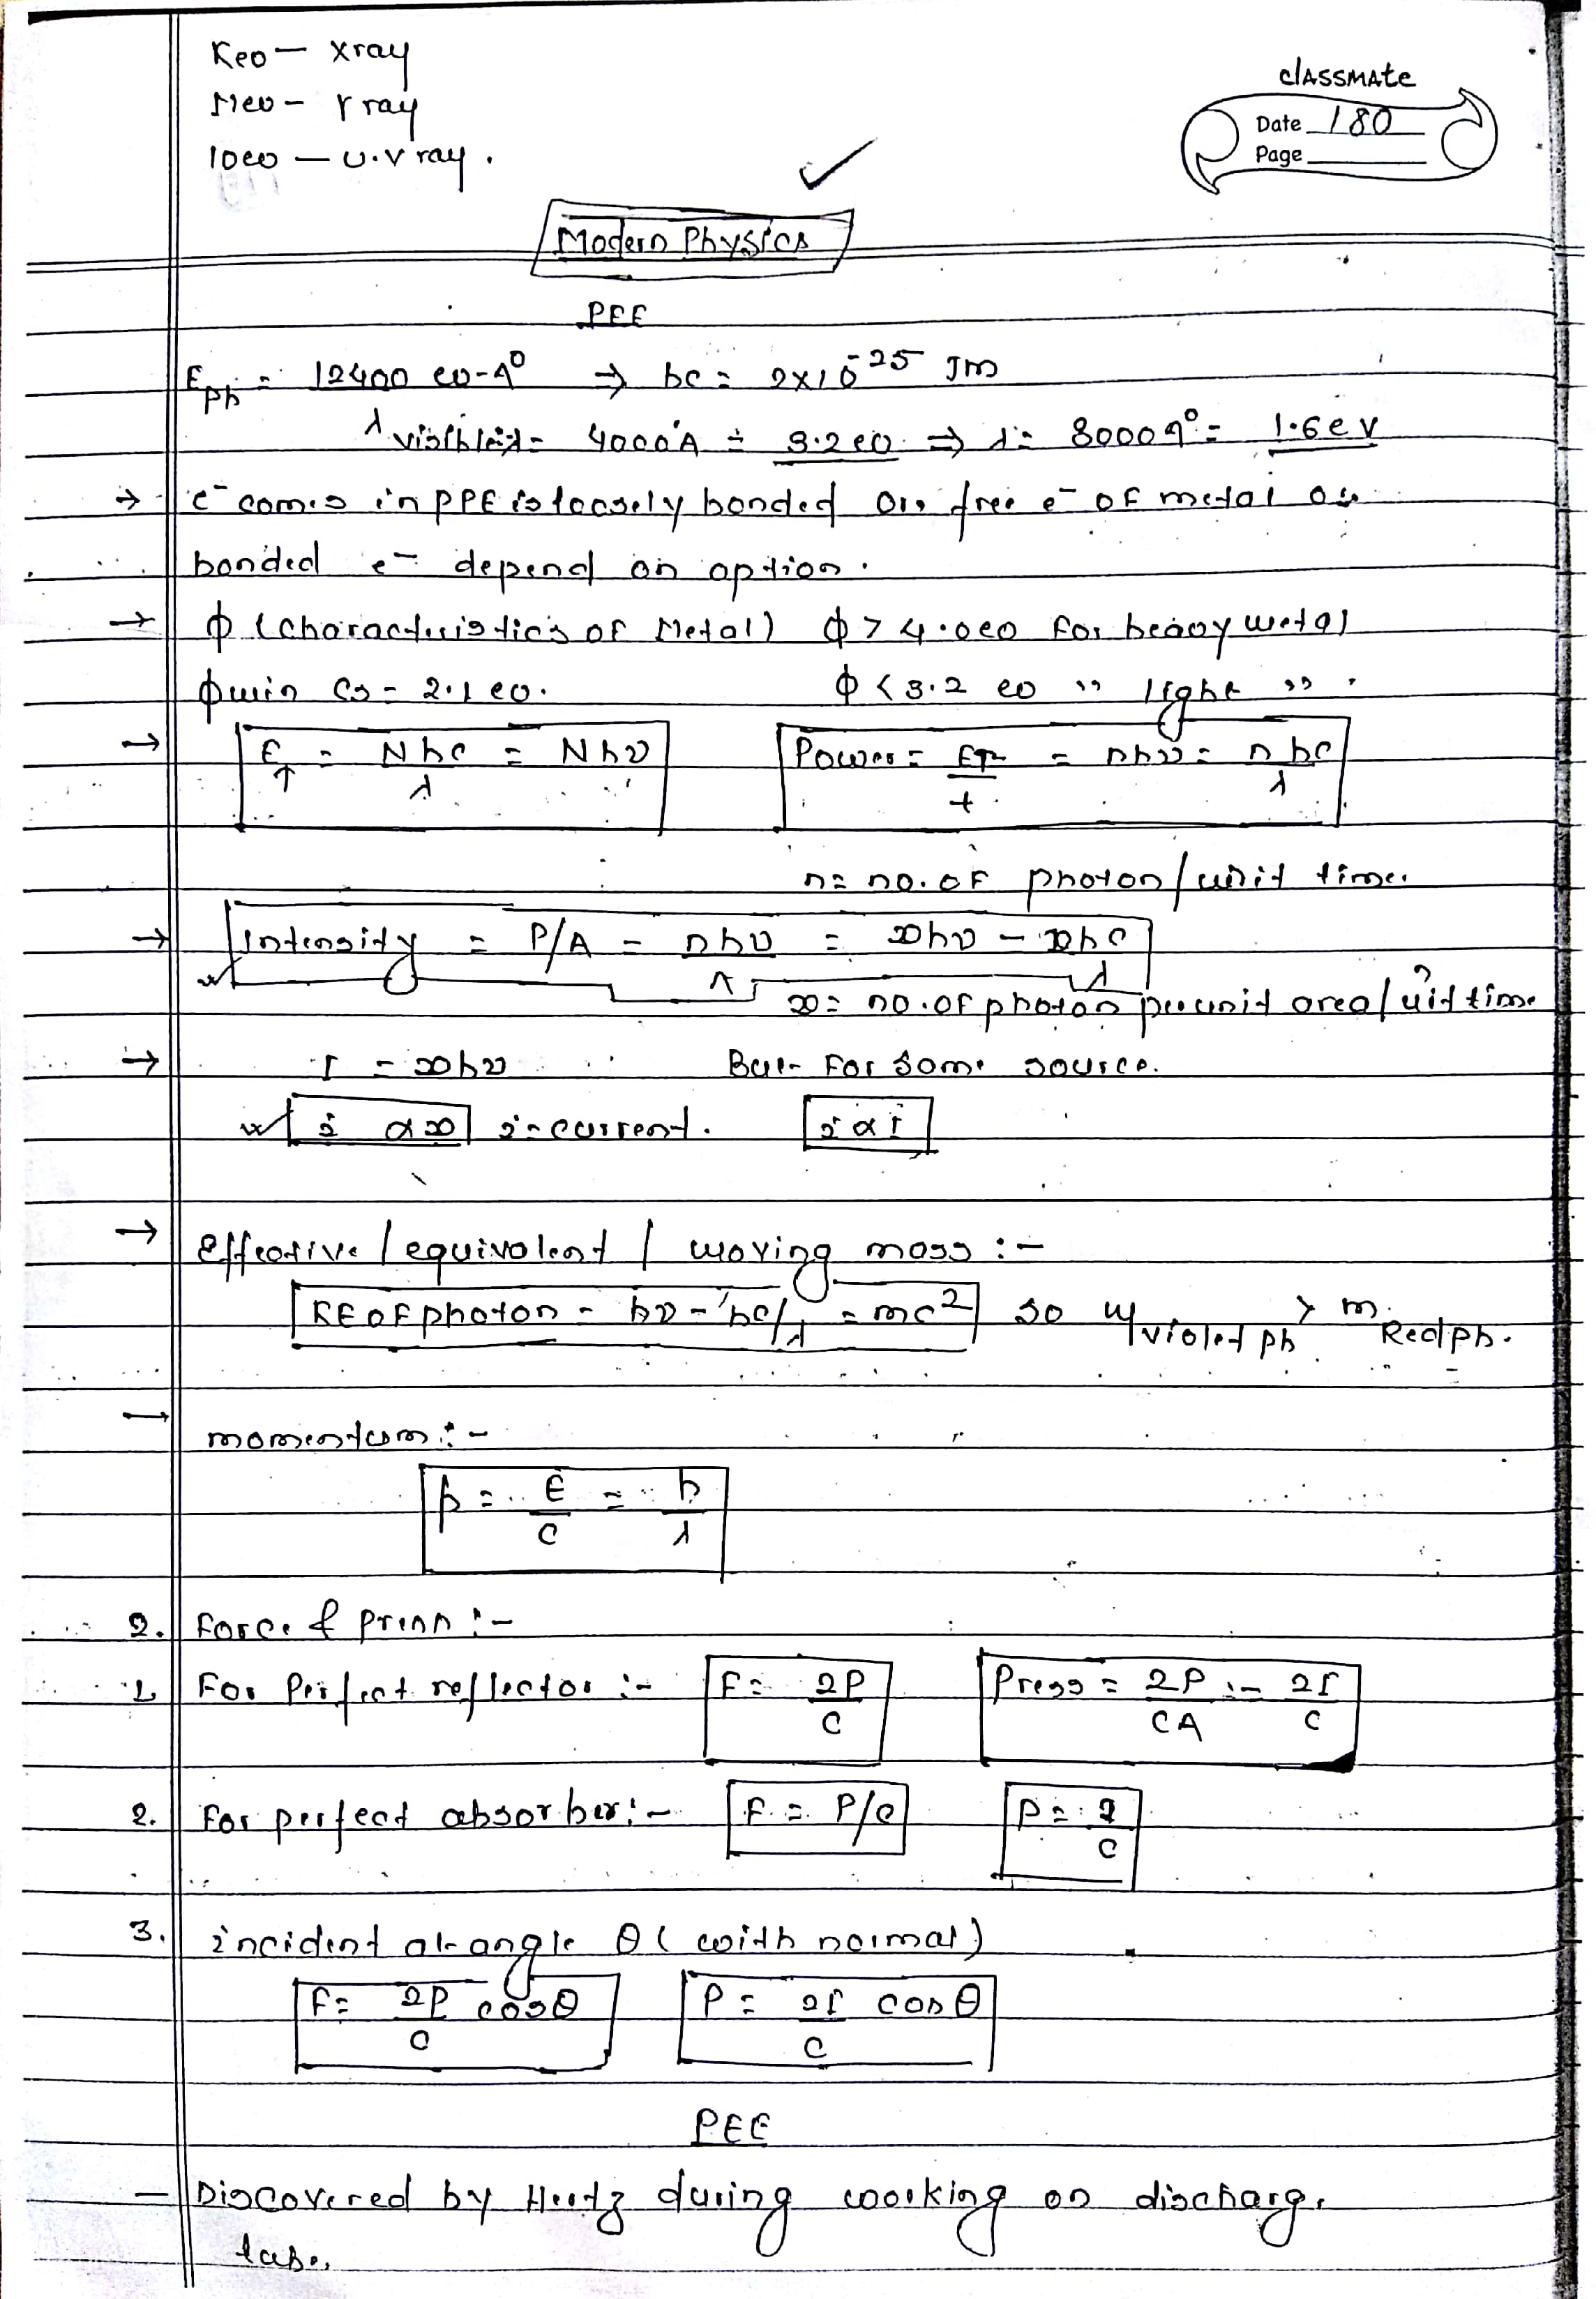 Kev — x ray
Mev — γ ray
10ev — u.v ray.
classmate
Date 180
Page
Modern Physics
PEE
E_ph = 12400 ev-A° / λ ⇒ hc = 2×10^-25 Jm
visible λ = 4000°A = 3.2 ev ⇒ λ = 8000A° = 1.6 ev
→ e⁻ comes in PPE is loosely bonded or free e⁻ of metal or
bonded e⁻ depend on option.
→ ϕ (Characteristics of Metal) ϕ > 4.0ev For heavy metal
ϕmin Cs = 2.1 ev. ϕ < 3.2 ev " light " .
→ E_T = Nhc/λ = Nhν Power = E_T/t = nhν = nhc/λ
n = no. of photon / unit time.
→ Intensity = P/A = nhν/A = xhν = xhc/λ
x = no. of photon per unit area / unit time
→ I = xhν But For same source.
i α x i = current. i α I
→ Effective / equivalent / moving mass :-
KE of photon = hν = hc/λ = mc² so m violet ph > m Red ph.
→ momentum :-
p = E/C = h/λ
2. Force & press :-
1. For Perfect reflector :- F = 2P/C Press = 2P/CA = 2I/C
2. For perfect absorber :- F = P/C P = I/C
3. incident at angle θ ( with normal )
F = 2P/C cosθ P = 2I/C cosθ
PEE
— Discovered by Hertz during working on discharge
tube.